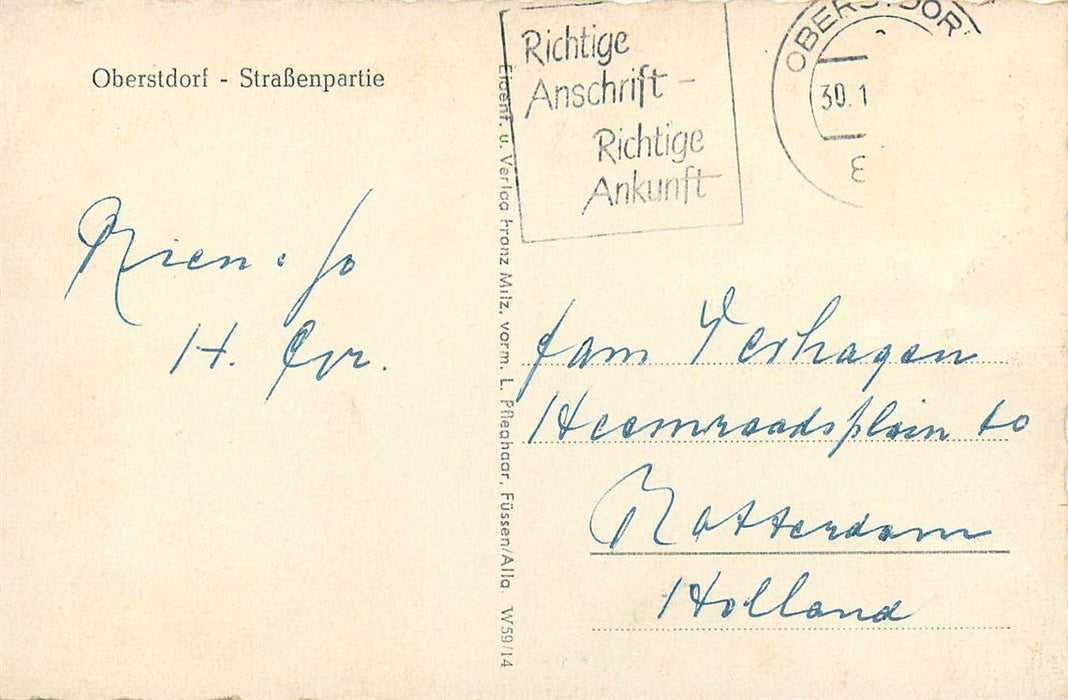 Oberstdorf - Straßenpartie
Rien. Jo
H. Gr.
Eigent. u. Verlag Franz Milz, vorm. L. Pfleghaar, Füssen/Allg. W59/14
Richtige
Anschrift -
Richtige
Ankunft
OBERSTDORF
30.1
fam Verhagen
Heemraadsplein 60
Rotterdam
Holland